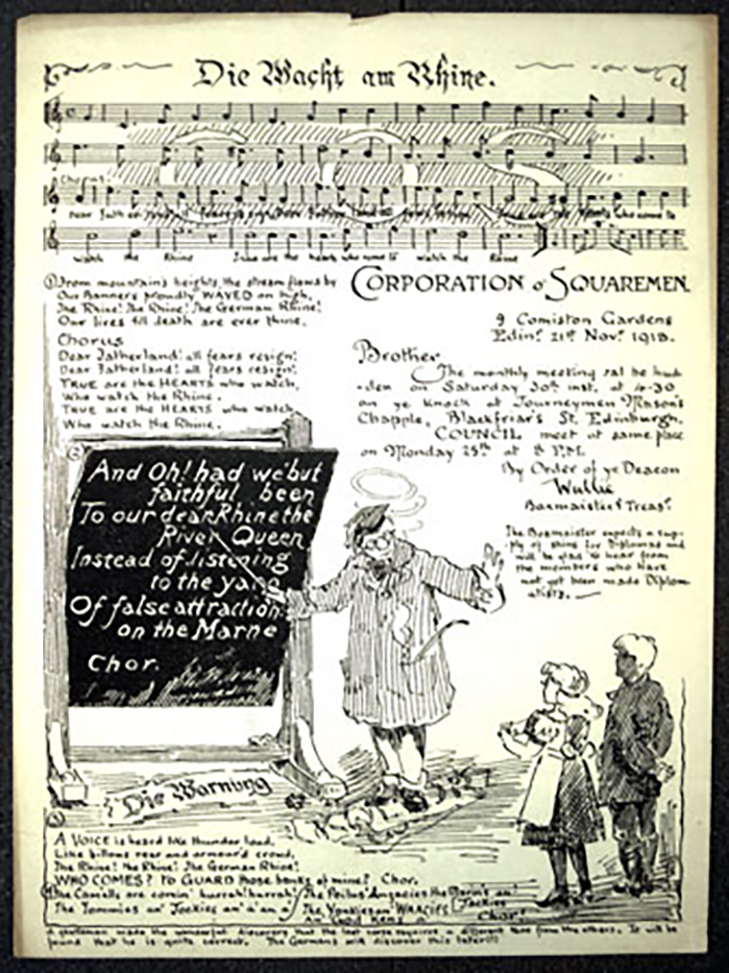 Die Wacht am Rhine.
Chorus:
watch the Rhine True are the hearts who come to watch the Rhine
① From mountain's heights, the stream flows by
Our banners proudly WAVED on high,
The Rhine! The Rhine! The German Rhine!
Our lives till death are ever thine.
Chorus
Dear Fatherland! all fears resign!
Dear Fatherland! all fears resign!
TRUE are the HEARTS who watch,
Who watch the Rhine.
TRUE are the HEARTS who watch
Who watch the Rhine.
CORPORATION o' SQUAREMEN.
9 Comiston Gardens
Edinr. 21st Novr. 1918.
Brother
The monthly meeting sal be hud
-den on Saturday 30th inst. at 4-30
on ye knock at Journeymen Mason's
Chapple, Blackfriar's St. Edinburgh.
COUNCIL meet at same place
on Monday 25th at 8 P.M.
By Order of ye Deacon
Wullie
Boxmaister & Treasr.
The Boxmaister expects a sup-
ply of shins for Diplomas and
will be glad to hear from
the members who have
not yet been made Diplom
-atists.
②
And Oh! had we but
faithful been
To our dear Rhine the
River Queen
Instead of listening
to the
Of false attraction
on the Marne
Chor.
Die Warnung
③
A VOICE is heard like thunder loud,
Like billows roar and armour'd crowd,
The Rhine! the Rhine! The German Rhine!
WHO COMES? to GUARD those banks of mine? Chor.
The are comin' hurrah! hurrah!
The Tommies an' Jockies an' a' an' a'
The Poilus' the Marin's an'
The Yankies an' WAACIES
Chor!
A gentleman made the wonderful discovery that the last verse requires a different tune from the others. It will be
found that he is quite correct. The Germans will discover this later!!!